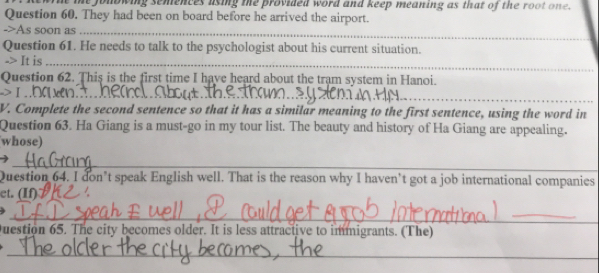 IV. Rewrite the following sentences using the provided word and keep meaning as that of the root one.
Question 60. They had been on board before he arrived the airport.
->As soon as
Question 61. He needs to talk to the psychologist about his current situation.
-> It is
Question 62. This is the first time I have heard about the tram system in Hanoi.
-> I haven't heard about the tham system in HN
V. Complete the second sentence so that it has a similar meaning to the first sentence, using the word in
Question 63. Ha Giang is a must-go in my tour list. The beauty and history of Ha Giang are appealing.
whose)
→ Ha Giang
Question 64. I don't speak English well. That is the reason why I haven't got a job international companies
et. (If) ĐK2:
If I speak E well, I could get a job international
Question 65. The city becomes older. It is less attractive to immigrants. (The)
The older the city becomes, the